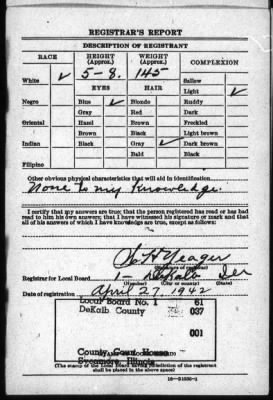 REGISTRAR'S REPORT
DESCRIPTION OF REGISTRANT
RACE HEIGHT (Approx.) WEIGHT (Approx.) COMPLEXION
White ✓ 5-8. 145 Sallow
EYES HAIR Light ✓
Negro Blue ✓ Blonde Ruddy
Gray Red Dark
Oriental Hazel Black Freckled
Brown Brown Light brown
Indian Black Gray ✓ Dark brown
Bald Black
Filipino
Other obvious physical characteristics that will aid in identification
None to my Knowledge.
I certify that my answers are true; that the person registered has read or has had
read to him his own answers; that I have witnessed his signature or mark and that
all of his answers of which I have knowledge are true, except as follows:
Yeager
Registrar for Local Board 1- DeKalb Ill
(Number) (City or county) (State)
Date of registration April 27, 1942
Local Board No. 1 61
DeKalb County 037
001
County Court House
Sycamore, Illinois
(The stamp of the Local Board having jurisdiction of the registrant
shall be placed in the above space)